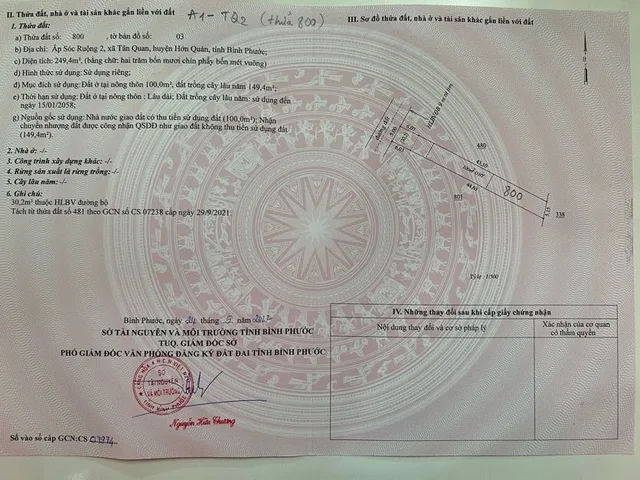 II. Thửa đất, nhà ở và tài sản khác gắn liền với đất
A1-TQ2 (thửa 800)
1. Thửa đất:
a) Thửa đất số: 800 , tờ bản đồ số: 03
b) Địa chỉ: Ấp Sóc Ruộng 2, xã Tân Quan, huyện Hớn Quản, tỉnh Bình Phước;
c) Diện tích: 249,4m², (bằng chữ: hai trăm bốn mươi chín phẩy bốn mét vuông)
d) Hình thức sử dụng: Sử dụng riêng;
đ) Mục đích sử dụng: Đất ở tại nông thôn 100,0m², đất trồng cây lâu năm 149,4m²;
e) Thời hạn sử dụng: Đất ở tại nông thôn : Lâu dài; Đất trồng cây lâu năm: sử dụng đến
ngày 15/01/2058;
g) Nguồn gốc sử dụng: Nhà nước giao đất có thu tiền sử dụng đất (100,0m²); Nhận
chuyển nhượng đất được công nhận QSDĐ như giao đất không thu tiền sử dụng đất
(149,4m²).
2. Nhà ở: -/-
3. Công trình xây dựng khác: -/-
4. Rừng sản xuất là rừng trồng: -/-
5. Cây lâu năm: -/-
6. Ghi chú:
30,2m² thuộc HLBV đường bộ
Tách từ thửa đất số 481 theo GCN số CS 07238 cấp ngày 29/9/2021.
Bình Phước, ngày 24 tháng 5 năm 2022
SỞ TÀI NGUYÊN VÀ MÔI TRƯỜNG TỈNH BÌNH PHƯỚC
TUQ. GIÁM ĐỐC SỞ
PHÓ GIÁM ĐỐC VĂN PHÒNG ĐĂNG KÝ ĐẤT ĐAI TỈNH BÌNH PHƯỚC
SỞ
TÀI NGUYÊN
VÀ MÔI TRƯỜNG
Nguyễn Hữu Chương
Số vào sổ cấp GCN:CS 07974
III. Sơ đồ thửa đất, nhà ở và tài sản khác gắn liền với đất
480
43.10
800
44.80
801
5.15
338
5.00
6.03
Tỷ lệ: 1/500
IV. Những thay đổi sau khi cấp giấy chứng nhận
Nội dung thay đổi và cơ sở pháp lý
Xác nhận của cơ quan
có thẩm quyền